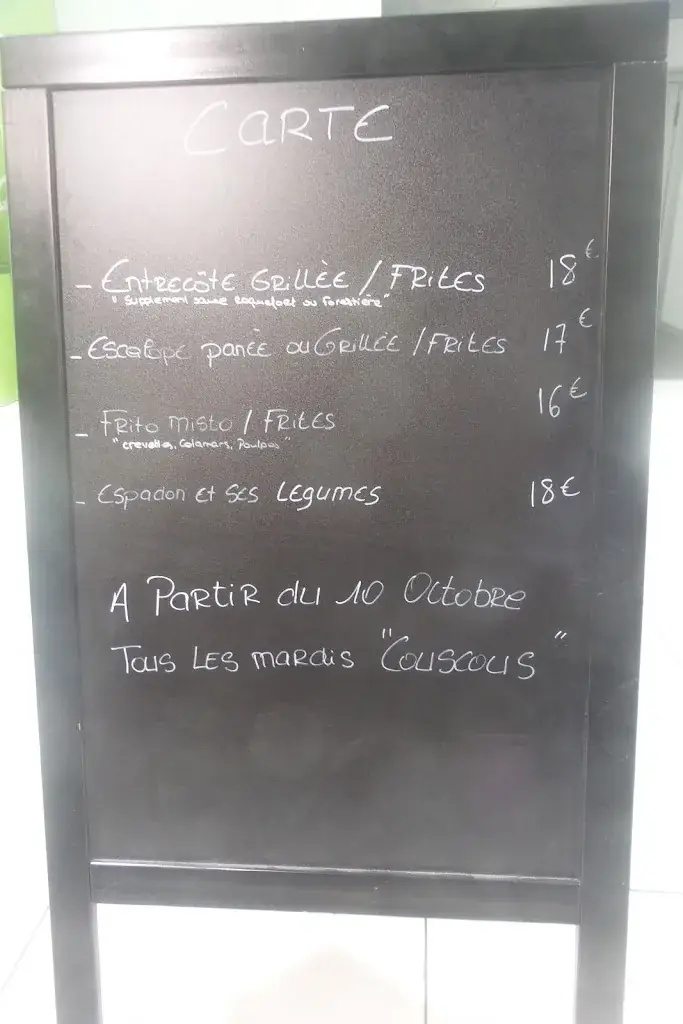 CARTE
- Entrecôte Grillèe / Frites 18€
"Supplement sauce Roquefort ou Forestière"
- Escalope panèe ou Grillèe / Frites 17€
- Frito misto / Frites 16€
"crevettes, Calamars, Poulpes"
- Espadon et ses Legumes 18€
A Partir du 10 Octobre
Tous les mardis "Couscous"